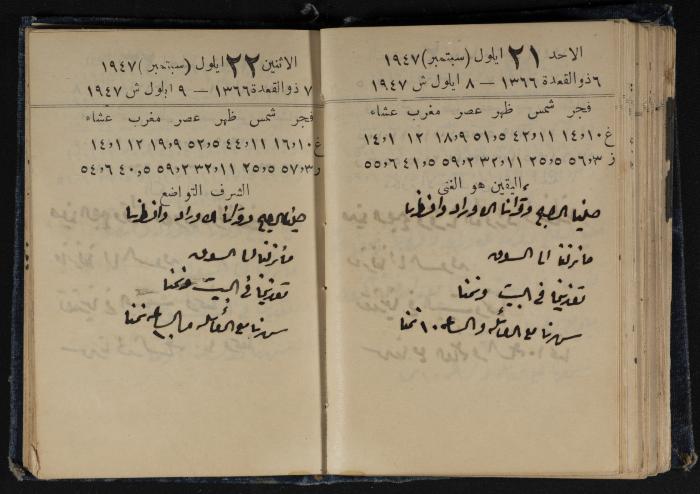 الاحد ٢١ ايلول (سبتمبر) ١٩٤٧
٦ ذو القعدة ١٣٦٦ — ٨ ايلول ش ١٩٤٧
فجر شمس ظهر عصر مغرب عشاء
غ ١٠و١٤ ١١و٤٢ ٥و٥١ ٩و١٨ ١٢ ١و١٤
ز ٣و٥٦ ٥و٢٥ ١١و٣٢ ٢و٥٩ ٥و٤١ ٦و٥٥
اليقين هو الغنى
صلينا الصبح وقرأنا الاوراد وافطرنا
ما نزلنا الى السوق
تغدينا في البيت ونمنا
سهرنا مع العائلة والساعه ١٠ نمنا
الاثنين ٢٢ ايلول (سبتمبر) ١٩٤٧
٧ ذو القعدة ١٣٦٦ — ٩ ايلول ش ١٩٤٧
فجر شمس ظهر عصر مغرب عشاء
غ ١٠و١٦ ١١و٤٤ ٥و٥٢ ٩و١٩ ١٢ ١و١٤
ز ٣و٥٧ ٥و٢٥ ١١و٣٢ ٢و٥٩ ٥و٤٠ ٦و٥٤
الشرف التواضع
صلينا الصبح وقرأنا الاوراد وافطرنا
ما نزلنا الى السوق
تغدينا في البيت ونمنا
سهرنا مع العائله الساعه نمنا